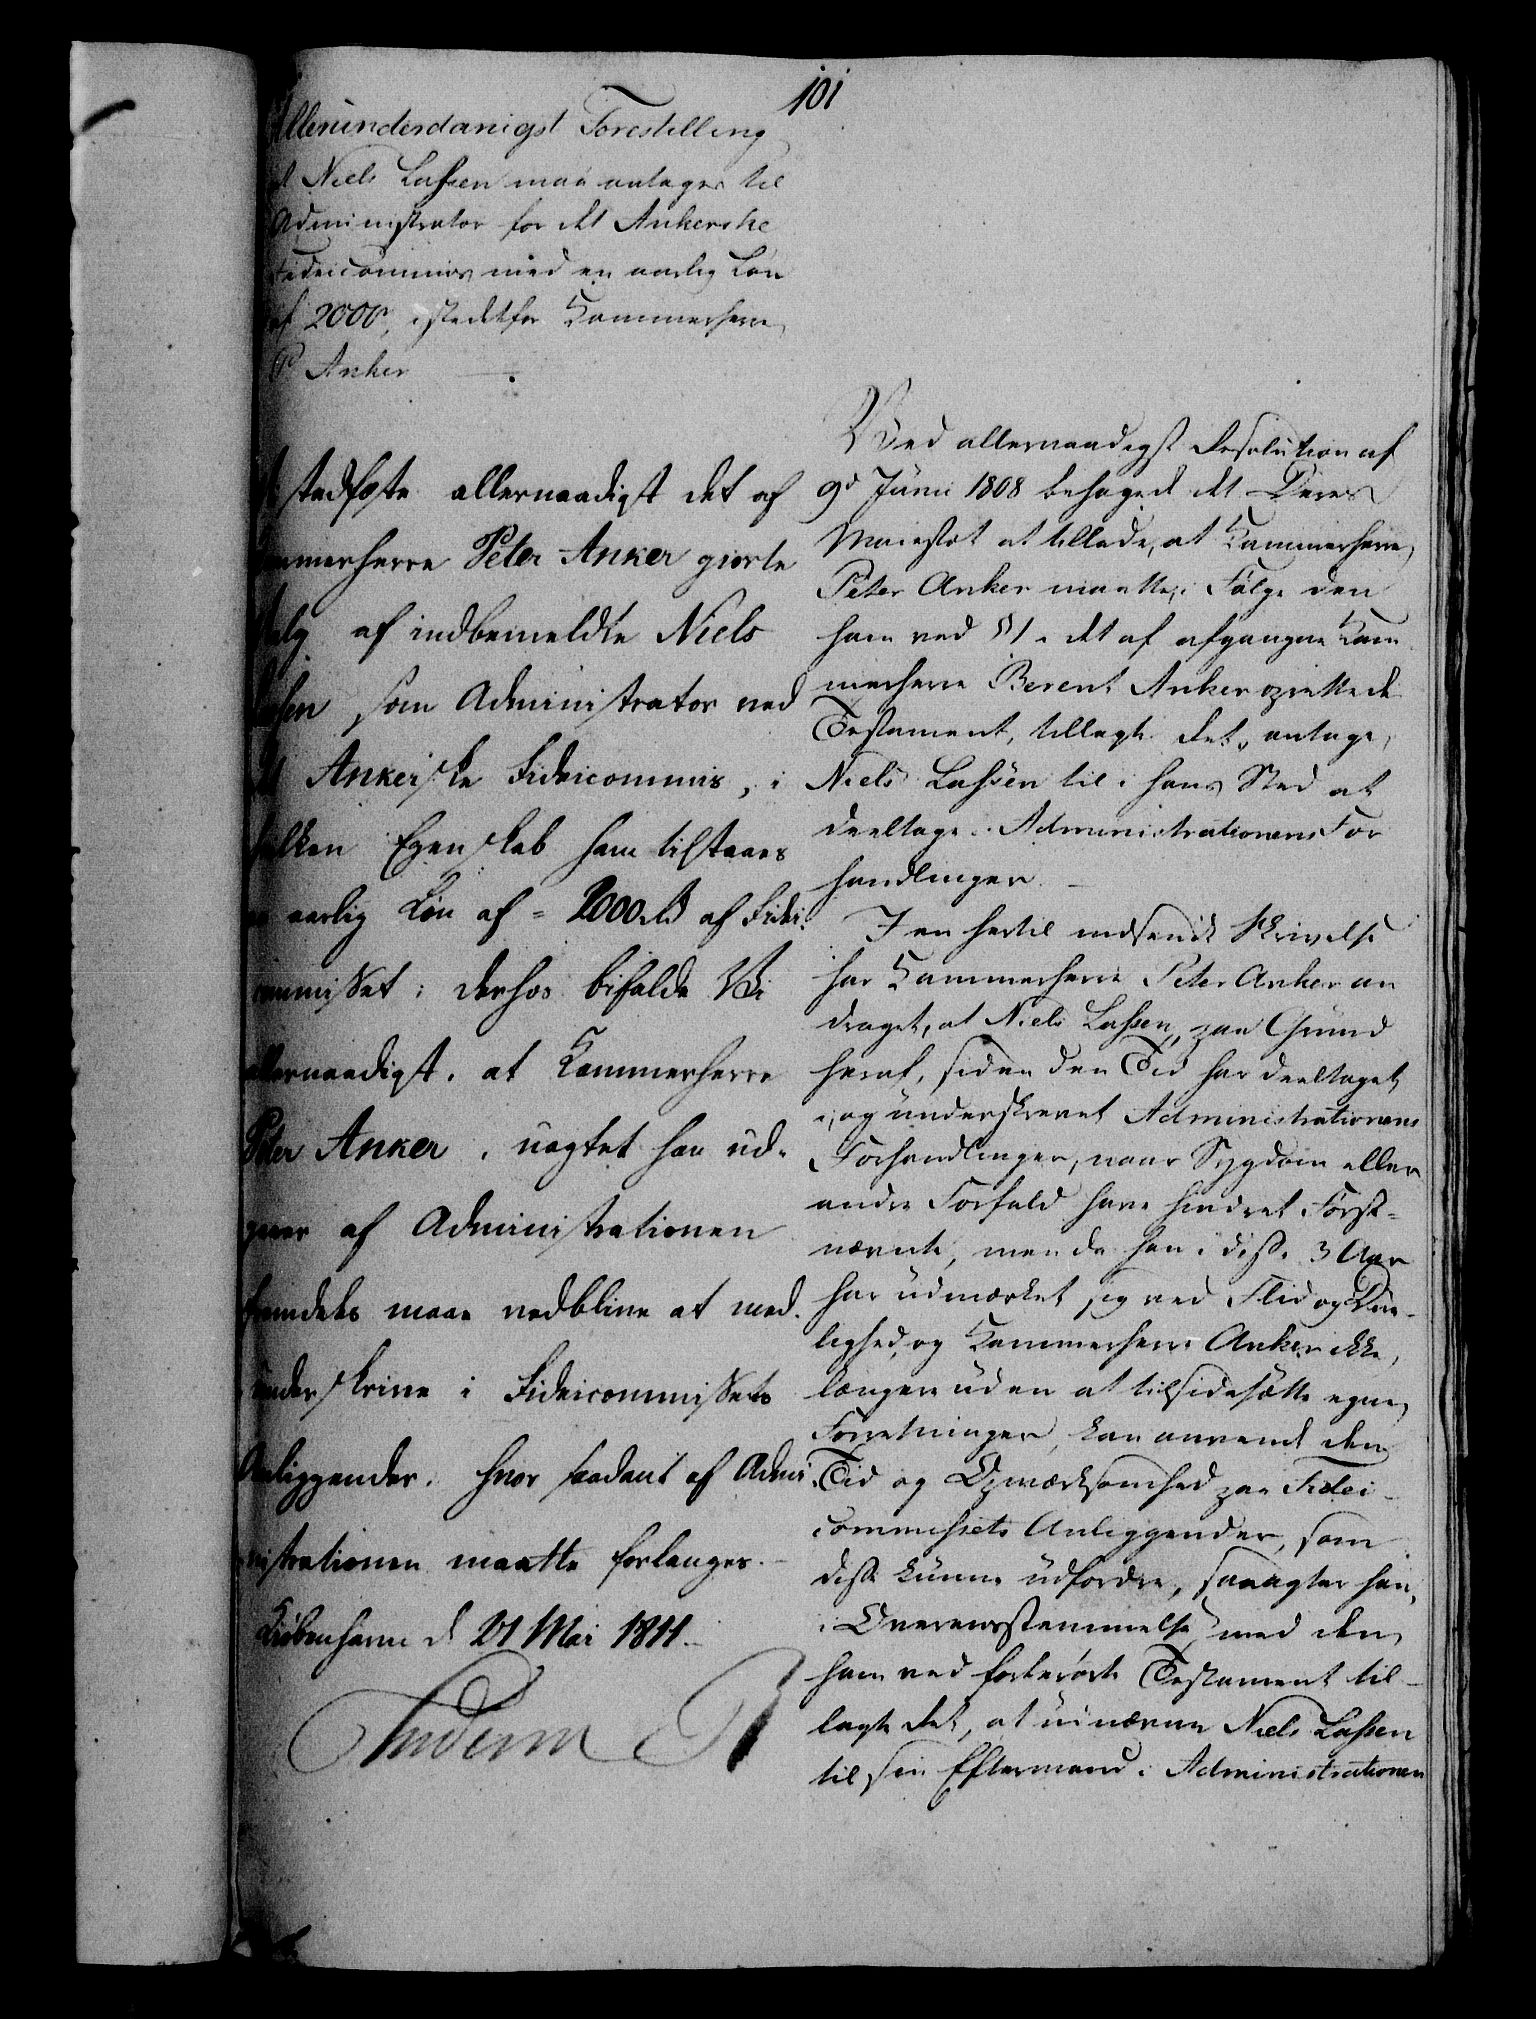 101
Allerunderdanigst Forestilling
at Niels Lassen maa antages til
Administrator for det Ankerske
Fideicommis med en aarlig Løn
af 2000, istedetfor Kammerherre
P Anker
stadfæste allernaadigst det af
Kammerherre Peter Anker giorte
Valg af indbemeldte Niels
Lassen som Administrator ved
det Ankerske Fideicommis, i
hvilken Egenskab ham tilstaaes
en aarlig Løn af 2000 rd af Fidei
commisset; derhos bifalde Vi
allernaadigst, at Kammerherre
Peter Anker, uagtet han ud-
gaaer af Administrationen
fremdeles maae vedblive at med-
underskrive i Fideicommissets
Anliggender, hvor saadant af Admi
nistrationen maatte forlanges.
Kiøbenhavn d 21 Mai 1811.
Frederik R
Ved allernaadigst Resolution af
9d Junii 1808 behagede det Deres
Maiestæt at tillade, at Kammerherre
Peter Anker maatte, i Følge den
ham ved § 1 i det af afgangne Kam
merherre Berent Anker oprettede
Testament, tillagte Ret, antage
Niels Lassen til i hans Sted at
deeltage i Administrationens For
handlinger.
I en hertil indsendt Skrivelse
har Kammerherre Peter Anker an
draget, at Niels Lassen, paa Grund
heraf, siden den Tid har deeltaget
i, og underskrevet Administrationens
Forhandlinger, naar Sygdom eller
andre Forfald have hindret Først-
nævnte, men da han i disse 3 Aar
har udmærket sig ved Flid og Due-
lighed, og Kammerherre Anker ikke
længere uden at tilsidesætte egne
Forretninger, kan anvende den
Tid og Opmærksomhed paa Fidei-
commissets Anliggender, som
disse kunne udfordre, saa agter han,
i Overensstemmelse med den
ham ved forberørte Testament til-
lagte Ret, at udnævne Niels Lassen
til sin Eftermand i Administrationen